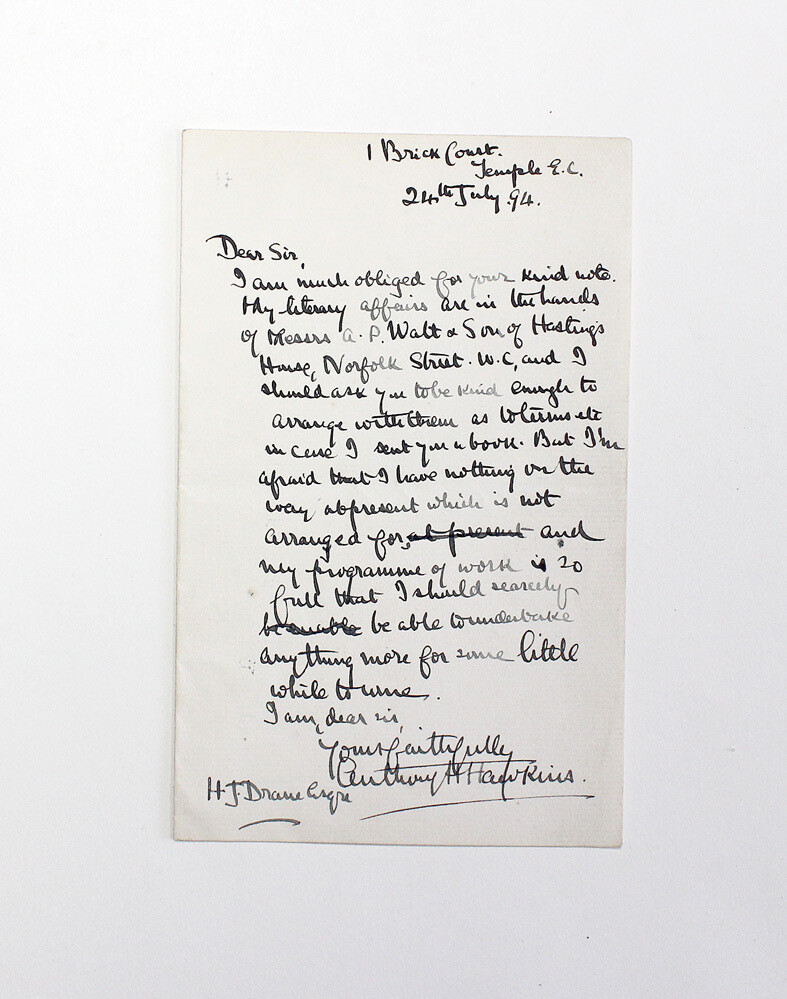 1 Brick Court.
Temple E.C.
24th July 94.
Dear Sir,
I am much obliged for your kind note.
My literary affairs are in the hands
of Messrs A. P. Watt & Son of Hastings
House, Norfolk Street. W.C, and I
should ask you to be kind enough to
arrange with them as to terms etc
in case I sent you a book. But I'm
afraid that I have nothing on the
way at present which is not
arranged for, at present and
my programme of work is so
full that I should scarcely
be unable be able to undertake
anything more for some little
while to come.
I am, dear sir,
Yours faithfully
Anthony H Hawkins.
H. J. Drane Esqre